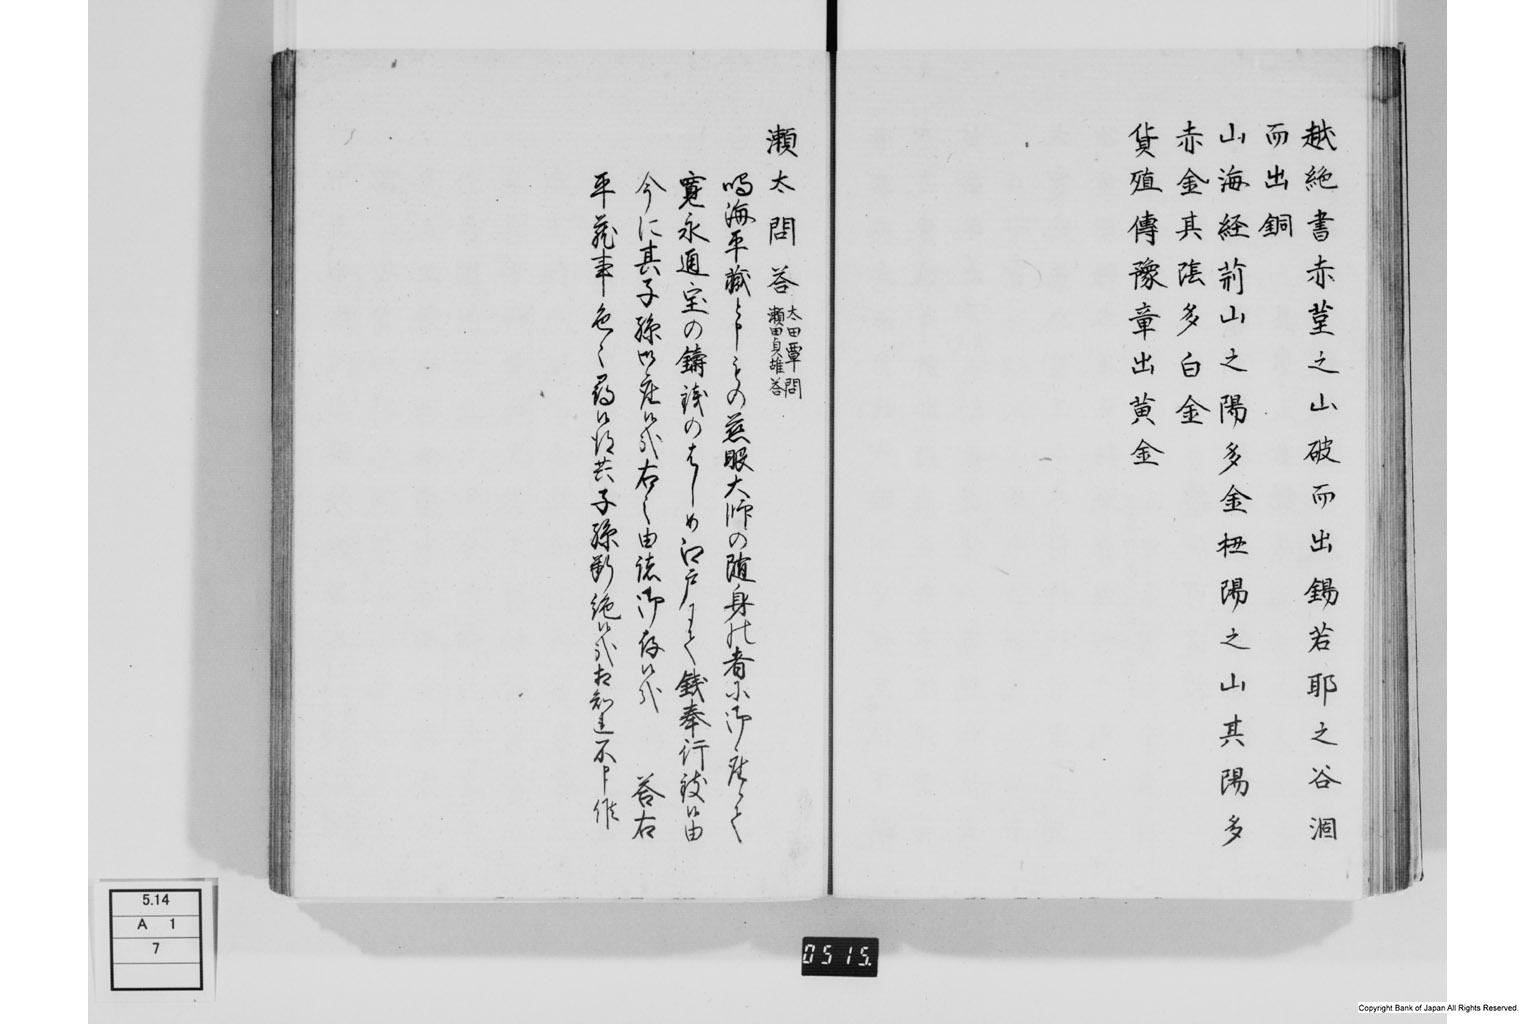 越絶書赤堇之山破而出錫若耶之谷涸
而出銅
山海経荊山之陽多金杻陽之山其陽多
赤金其陰多白金
貨殖傳豫章出黄金
瀬太問答
太田覃問
瀬田貞雄答
鳴海平蔵と申ものハ慈眼大師の随身の者に御座候て
寛永通宝の鋳銭のはしめ江戸にて銭奉行致候由
今に其子孫御座候哉右之由諸御存候哉 答右
平蔵事色々尋候得共子孫断絶候哉相知不申候
5.14
A 1
7
0515.
Copyright Bank of Japan All Rights Reserved.